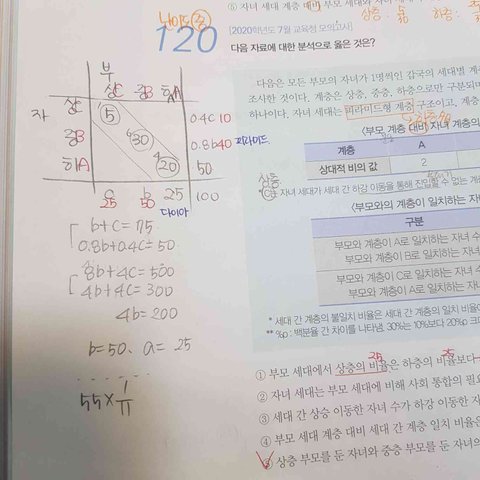 ⑤ 자녀 세대 계층 대비 부모 세대와 자
상층 :
하층 :
난이도 ㊥
120
[2020학년도 7월 교육청 모의고사]
다음 자료에 대한 분석으로 옳은 것은?
부
상C 중B 하A
자 상C 5 0.4C 10
중B 30 0.8b 40
하A 20 50
25 50 25 100
다이아
피라미드
b+c=75
0.8b+0.4c=50
8b+4c=500
4b+4c=300
4b=200
b=50, a=25
55×1/11
다음은 모든 부모의 자녀가 1명씩인 갑국의 세대별 계
조사한 것이다. 계층은 상층, 중층, 하층으로만 구분되며
하나이다. 자녀 세대는 피라미드형 계층 구조이고, 계층
<부모 계층 대비 자녀 계층의
계층 A
상대적 비의 값 2
상층
*C는 자녀 세대가 세대 간 하강 이동을 통해 진입할 수 없는 계
<부모와의 계층이 일치하는 자
구분
부모와 계층이 A로 일치하는 자녀 수
부모와 계층이 B로 일치하는 자녀
부모와 계층이 C로 일치하는 자녀
부모와 계층이 A로 일치하는 자녀 수
* 세대 간 계층의 불일치 비율은 세대 간 계층의 일치 비율이
** %p : 백분율 간 차이를 나타냄. 30%는 10%보다 20%p 크다
25 25
① 부모 세대에서 상층의 비율은 하층의 비율보다
② 자녀 세대는 부모 세대에 비해 사회 통합의 필요
③ 세대 간 상승 이동한 자녀 수가 하강 이동한 자
④ 부모 세대 계층 대비 세대 간 계층 일치 비율은
⑤ 상층 부모를 둔 자녀와 중층 부모를 둔 자녀의